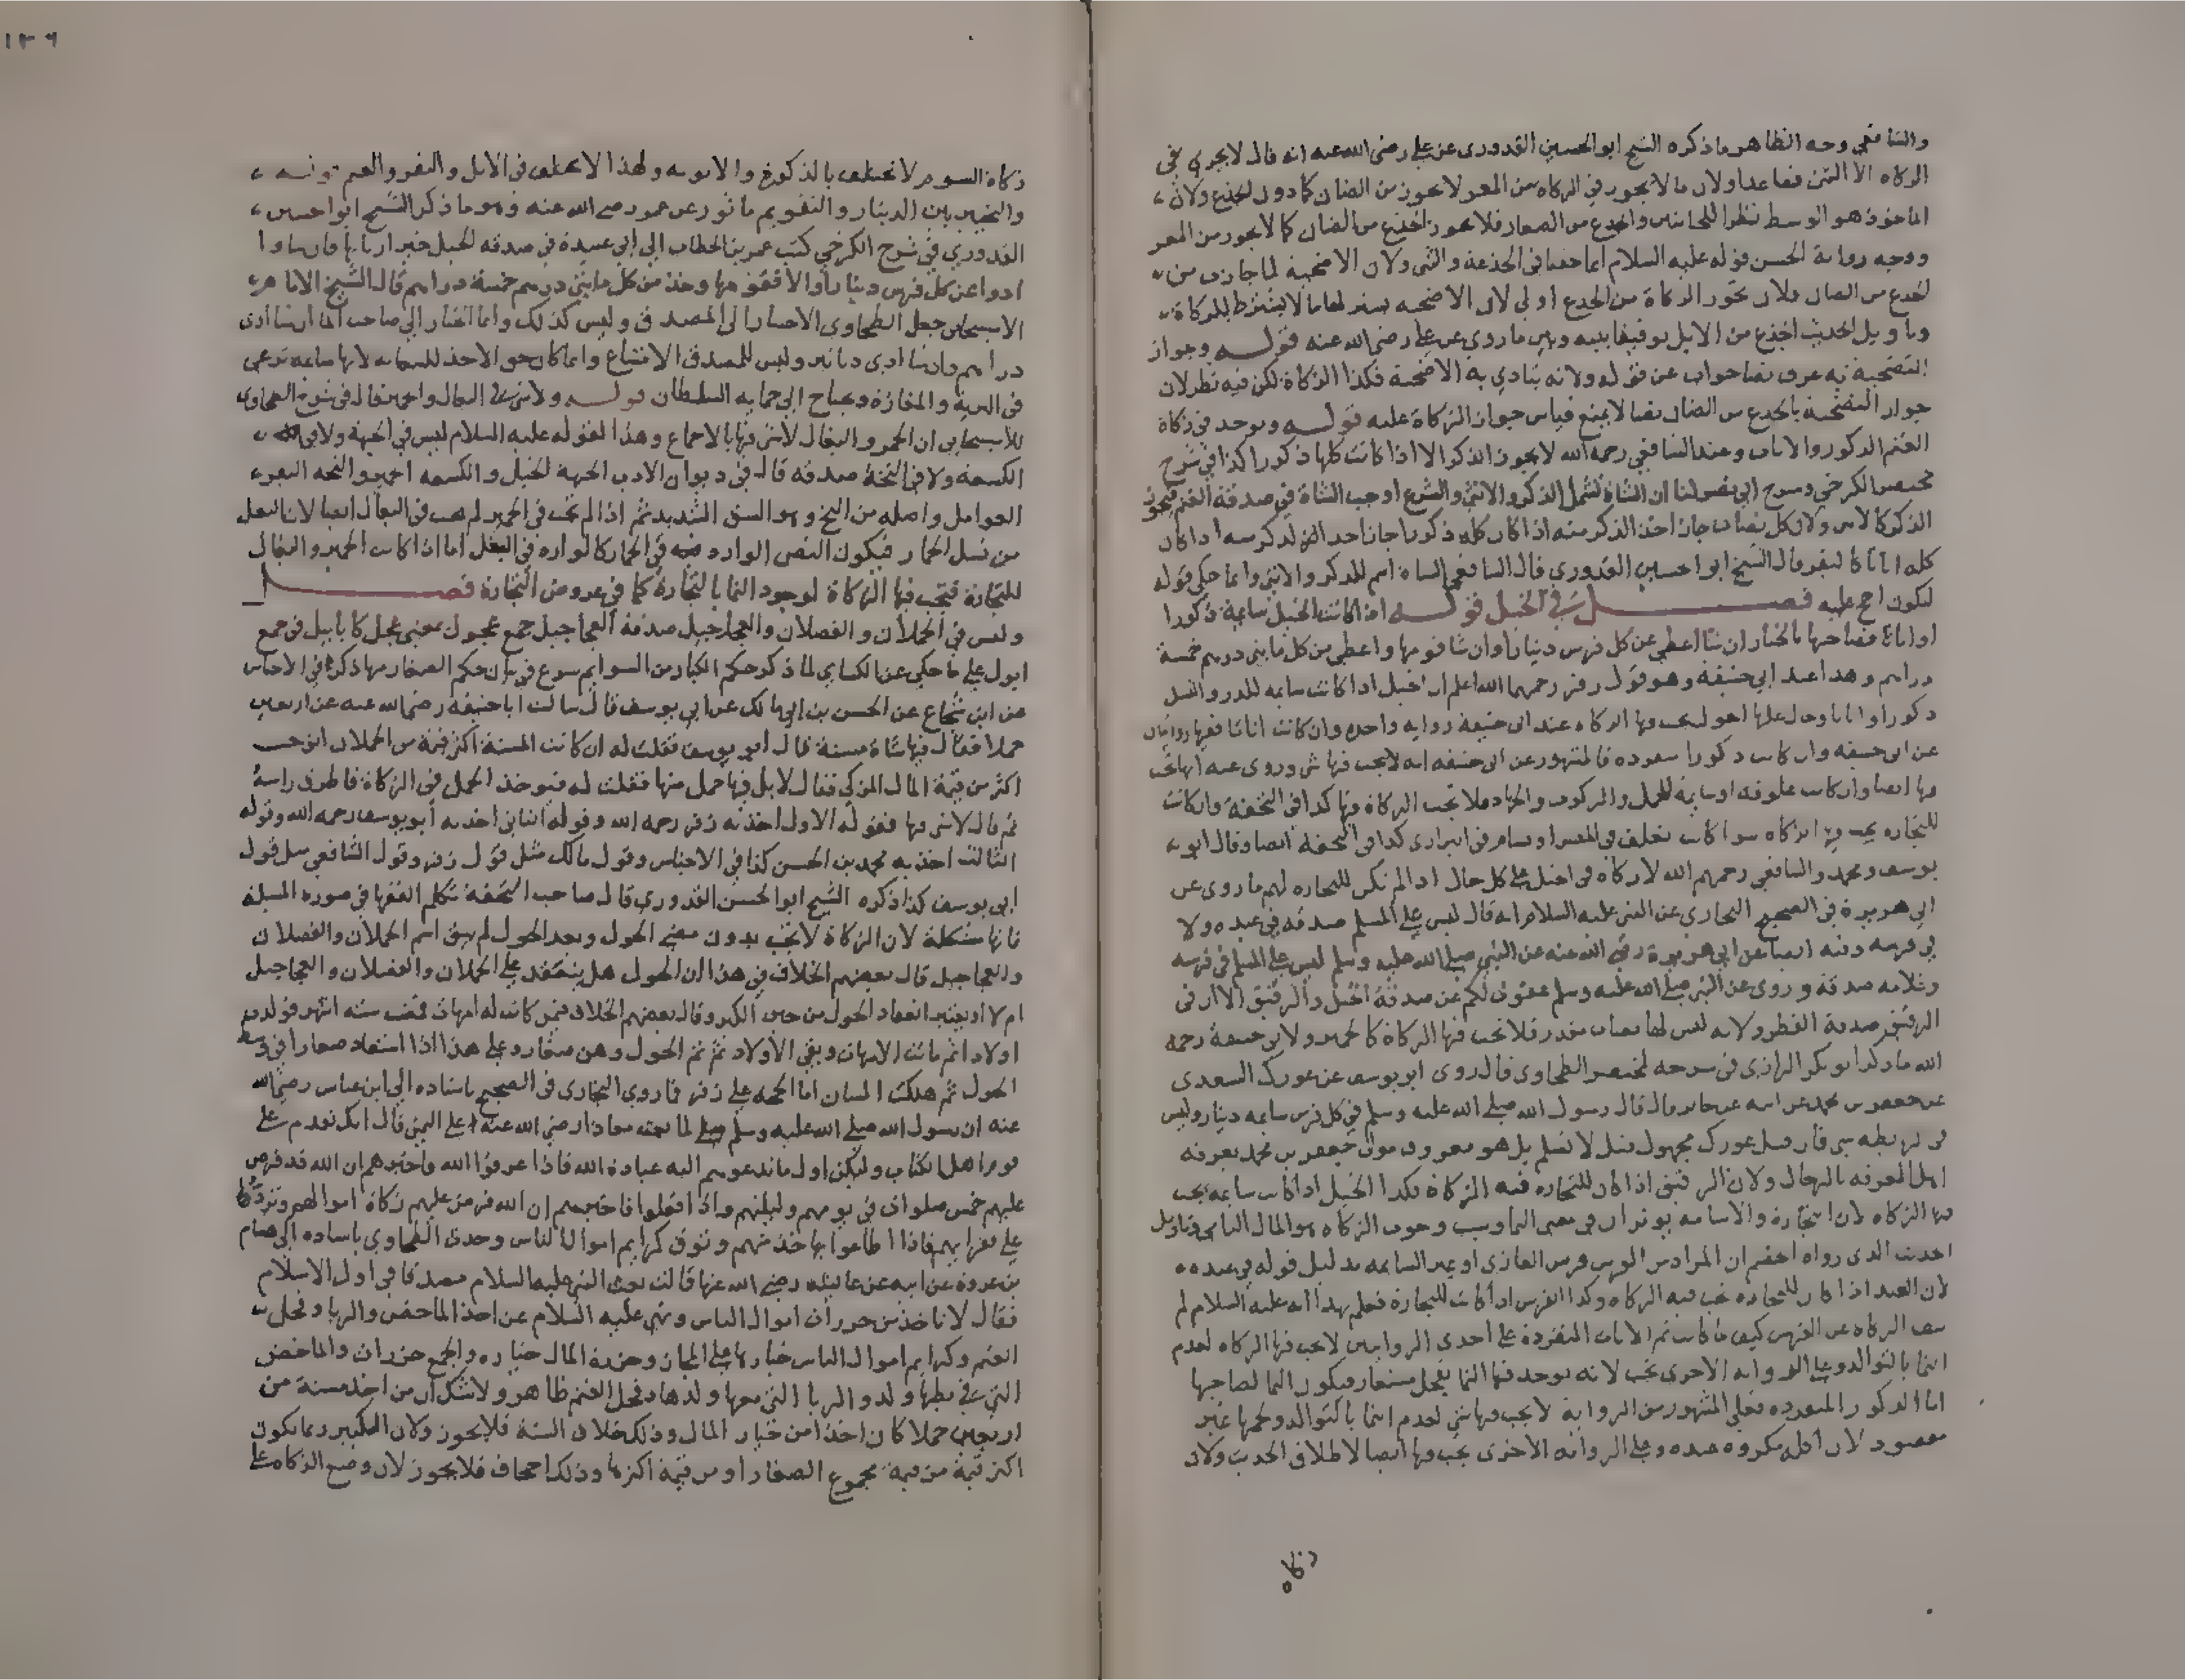 والشافعي وجه الظاهر ما ذكره الشيخ ابو الحسين القدوري عن علي رضي الله عنه انه قال لا يجزي في
الزكاه الا الثني فصاعدا ولان ما لا يجوز في الزكاه من المعز لا يجوز من الضان كما دون الجذع ولان
الماخوذ هو الوسط نظرا للجانبين والجذع من الصغار فلا يجوز الجذع من الضان كما لا يجوز من المعز
ووجه رواية الحسن قوله عليه السلام انما حقنا في الجذعة والثني ولان الاضحية لما جازت من
الجذع من الضان فلان تجوز الزكاة من الجذع اولى لان الاضحيه يشترط لها ما لا يشترط للزكاة
وتاويل الحديث الجذع من الابل توفيقا بينه وبين ما روي عن علي رضي الله عنه قوله وجواز
التضحية به عرف نصا جواب عن قوله ولانه يتادي به الاضحية فكذا الزكاة لكن فيه نظر لان
جواز التضحية بالجذع من الضان نصا لا يمنع قياس جواز الزكاة عليه قوله ويوخذ في زكاة
الغنم الذكور والاناث وعند الشافعي رحمه الله لا يجوز الذكر الا اذا كانت كلها ذكورا كذا في شرح
مختصر الكرخي وشرح ابي نصر لنا ان الشاة تشمل الذكر والانثى والشرع اوجب الشاة في صدقة الغنم فيجوز
الذكر كالانثى ولان كل نصاب جاز اخذ الذكر منه اذا كان كله ذكورا جاز اخذ الذكر منه اذا كان
كله اناثا كالبقر قال الشيخ ابو الحسين القدوري قال الشافعي الشاة اسم للذكر والانثى وانما حكي قوله
ليكون احج عليه فصل في الخيل قوله اذا كانت الخيل سايمة ذكورا
او اناثا فصاحبها بالخيار ان شا اعطى عن كل فرس دينارا وان شا قومها واعطى من كل مايتي درهم خمسة
دراهم وهذا عند ابي حنيفة وهو قول زفر رحمهما الله اعلم ان الخيل اذا كانت سايمة للدر والنسل
ذكورا واناثا وحال عليها الحول تجب فيها الزكاه عند ابي حنيفة رواية واحدة وان كانت اناثا ففيها روايتان
عن ابي حنيفه وان كانت ذكورا منفردة فالمشهور عن ابي حنيفه انه لا يجب فيها شي وروي عنه انها تجب
فيها ايضا وان كانت علوفه او سايمة للحمل والركوب والجهاد فلا تجب الزكاة فيها كذا في التحفة وان كانت
للتجارة يجب فيها الزكاه سوا كانت تعلف في المصر او تسام في البراري كذا في التحفة ايضا وقال ابو
يوسف ومحمد والشافعي رحمهم الله لا زكاه في الخيل على كل حال اذا لم تكن للتجارة لهم ما روي عن
ابي هريرة في الصحيح البخاري عن النبي عليه السلام انه قال ليس على المسلم صدقه في عبده ولا
في فرسه وفيه ايضا عن ابي هريرة رضي الله عنه عن النبي صلى الله عليه وسلم ليس على المسلم في فرسه
وغلامه صدقه وروي عن النبي صلى الله عليه وسلم عفوت لكم عن صدقة الخيل والرقيق الا ان في
الرقيق صدقة الفطر ولانه ليس لها نصاب مقدر فلا تجب فيها الزكاة كالحمير ولابي حنيفة رحمه
الله ما ذكر ابو بكر الرازي في شرحه لمختصر الطحاوي قال روى ابو يوسف عن غورك السعدي
عن جعفر بن محمد عن ابيه عن جابر قال قال رسول الله صلى الله عليه وسلم في كل فرس سايمة دينار وليس
في الرابطه شي فان قيل غورك مجهول قيل لا نسلم بل هو معروف مولى جعفر بن محمد يعرفه
اهل المعرفه بالرجال ولان الرقيق اذا كان للتجاره فيه الزكاة فكذا الخيل اذا كانت سايمة يجب
فيها الزكاه لان التجارة والاسامه يوثران في معنى النما وسبب وجوب الزكاه هو المال النامي وتاويل
الحديث الذي رواه الخصم ان المراد من الفرس فرس الغازي او غير السايمه بدليل قوله في عبده
لان العبد اذا كان للتجاره تجب فيه الزكاه وكذا الفرس اذا كانت للتجارة فعلم بهذا انه عليه السلام لم
ينف الزكاه عن الفرس كيف ما كانت ثم الاناث المنفردة على احدى الروايتين لا تجب فيها الزكاه لعدم
النما بالتوالد وعلى الرواية الاخرى تجب لانه يوجد فيها النما بفحل مستعار فيكون النما لصاحبها
اما الذكور المنفرده فعلى المشهور من الرواية لا يجب فيها شي لعدم النما بالتوالد ولحمها غير
مقصود لان اكله مكروه عنده وعلى الروايه الاخرى يجب فيها ايضا لاطلاق الحديث ولان
زكاه
١٣٦
زكاة السوم لا تختلف بالذكورة والانوثه ولهذا لا يختلف في الابل والبقر والغنم قوله
والتخيير بين الدينار والتقويم ماثور عن عمر رضي الله عنه وهو ما ذكر الشيخ ابو الحسين
القدوري في شرح الكرخي كتب عمر بن الخطاب الى ابي عبيدة في صدقة الخيل خير اربابها فان شاوا
ادوا عن كل فرس دينارا والا فقومها وخذ من كل مايتي درهم خمسة دراهم قال الشيخ الامام
الاسبيجابي جعل الطحاوي الاختيار الى المصدق وليس كذلك وانما الخيار الى صاحب المال ان شا ادى
دراهم وان شا ادى دنانير وليس للمصدق الامتناع وانما كان حق الاخذ للسلطان لانها سايمه ترعى
في البرية والمفازة وتحتاج الى حماية السلطان قوله ولا شي في البغال والحمير قال في شرح الطحاوي
للاسبيجابي ان الحمر والبغال لا شي فيها بالاجماع وهذا لقوله عليه السلام ليس في الجبهة ولا في
الكسعة ولا في النخة صدقة قال في ديوان الادب الجبهة الخيل والكسعه الحمير والنخه البقر
العوامل واصله من النخ وهو السوق الشديد ثم اذا لم تجب في الحمير لم يجب في البغال ايضا لان البغل
من نسل الحمار فيكون النص الوارد في الحمار كالوارد في البغل اما اذا كانت الحمير والبغال
للتجارة فتجب فيها الزكاة لوجود النما بالتجارة كما في عروض التجارة فصل
وليس في الحملان والفصلان والعجاجيل صدقة العجاجيل جمع عجول بمعنى عجل كابابيل في جمع
ابول على ما حكي عن الكسايي لما ذكر حكم الكبار من السوايم شرع في بيان حكم الصغار منها ذكر في الاجناس
عن ابن شجاع عن الحسن بن ابي مالك عن ابي يوسف قال سالت ابا حنيفه رضي الله عنه عن اربعين
حملا فقال فيها شاة مسنة قال ابو يوسف فقلت له ان كانت المسنة اكثر قيمة من الحملان
اكثر من قيمة المال المزكي فقال لا بل فيها حمل منها فقلت له فيوخذ الحمل في الزكاة فاطرق راسه
ثم قال لا شي فيها فقوله الاول اخذ به زفر رحمه الله وقوله الثاني اخذ به ابو يوسف رحمه الله وقوله
الثالث اخذ به محمد بن الحسن كذا في الاجناس وقول مالك مثل قول زفر وقول الشافعي مثل قول
ابي يوسف كذا ذكره الشيخ ابو الحسن القدوري قال صاحب التحفة تكلم الفقها في صورة المسلة
فانها مشكلة لان الزكاة لا تجب بدون مضي الحول وبعد الحول لم يبق اسم الحملان والفصلان
والعجاجيل قال بعضهم الخلاف في هذا ان الحول هل ينعقد على الحملان والفصلان والعجاجيل
ام لا او يعتبر انعقاد الحول من حين الكبر وقال بعضهم الخلاف فيمن كانت له امهات فمضت ستة اشهر فولدت
اولادا ثم ماتت الامهات وبقي الاولاد ثم تم الحول وهن صغار وعلى هذا اذا استفاد صغارا في وسط
الحول ثم هلكت المسان اما الحجة على زفر فما روي البخاري في الصحيح باسناده الى ابن عباس رضي الله
عنه ان رسول الله صلى الله عليه وسلم لما بعث معاذا رضي الله عنه على اليمن قال انك تقدم على
قوم اهل كتاب وليكن اول ما تدعوهم اليه عبادة الله فاذا عرفوا الله فاخبرهم ان الله قد فرض
عليهم خمس صلوات في يومهم وليلتهم واذا فعلوا فاخبرهم ان الله فرض عليهم زكاة اموالهم وترد
على فقرايهم فاذا اطاعوا بها خذ منهم وتوق كرايم اموال الناس وحدث الطحاوي باسناده الى هشام
بن عروة عن ابيه عن عايشه رضي الله عنها قالت بعث النبي عليه السلام مصدقا في اول الاسلام
فقال لا تاخذ من حزرات اموال الناس ونهى عليه السلام عن اخذ الماخض والربا وفحل
الغنم وكرايم اموال الناس خيارها على المجاز وحزرة المال خياره والجمع حزرات والماخض
التي في بطنها ولد والربا التي معها ولدها وفحل الغنم ظاهر ولا شك ان من اخذ مسنة من
اربعين حملا كان اخذا من خيار المال وذلك خلاف السنة فلا يجوز ولان الكبير ربما يكون
اكثر قيمة من قيمة مجموع الصغار او من قيمة اكثرها وذلك اجحاف فلا يجوز لان وضع الزكاة على